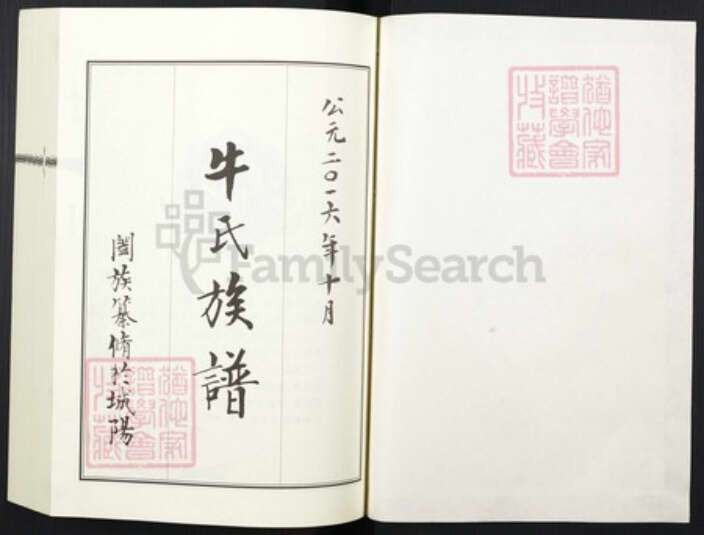 公元二〇一六年十月
牛氏族譜
闔族纂脩於城陽
FamilySearch
猶他家
譜學會
收藏
猶他家
譜學會
收藏